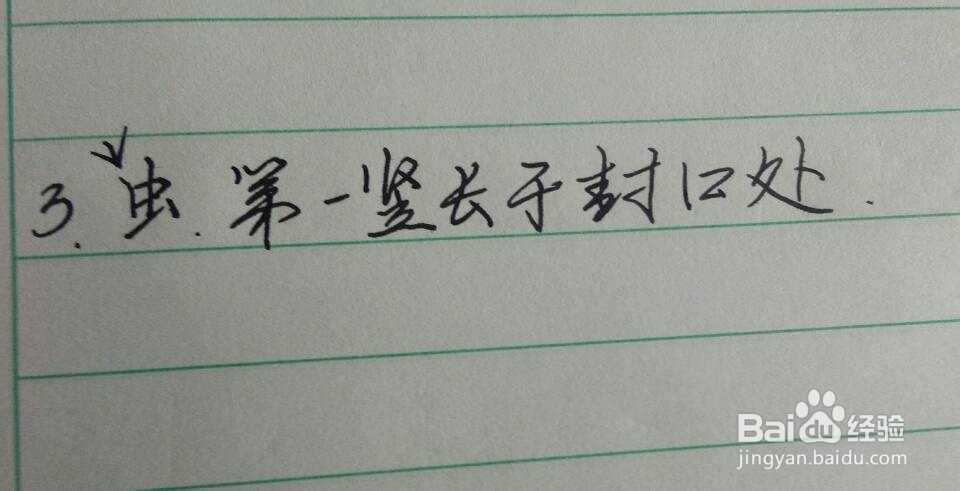 3. 虫. 第一竖长于封口处.
Baidu经验
jingyan.baidu.com